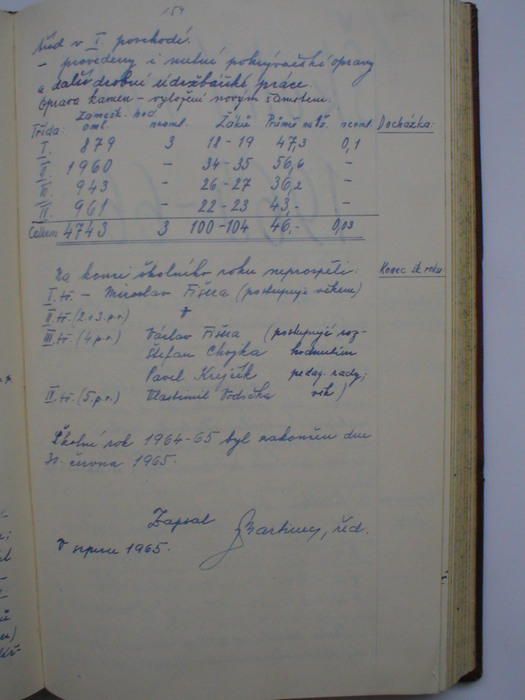 154
tříd v I. poschodí.
- provedeny i nutné pokrývačské opravy
a další drobné údržbářské práce.
Oprava kamen - vyložení novým šamotem.
Třída: Zamešk. hod. oml. neoml. Žáků Průměr na 1 ž. neoml. Docházka:
I. 879 3 18-19 47,3 0,1
II. 1960 - 34-35 56,6 -
III. 943 - 26-27 36,2 -
IV. 961 - 22-23 43,- -
Celkem 4743 3 100-104 46,- 0,03
Na konci školního roku neprospěli: Konec šk. roku:
I. tř. - Miroslav Fišera (postupuje věkem)
II. tř. (2+3.p.r.)
III. tř. (4.p.r.) Václav Fišera (postupují roz-
Štefan Chojka hodnutím
Pavel Krejčík pedag. rady;
IV. tř. (5.p.r.) Vlastimil Vodička věk)
Školní rok 1964-65 byl zakončen dne
30. června 1965.
Zapsal
, řed.
V srpnu 1965.